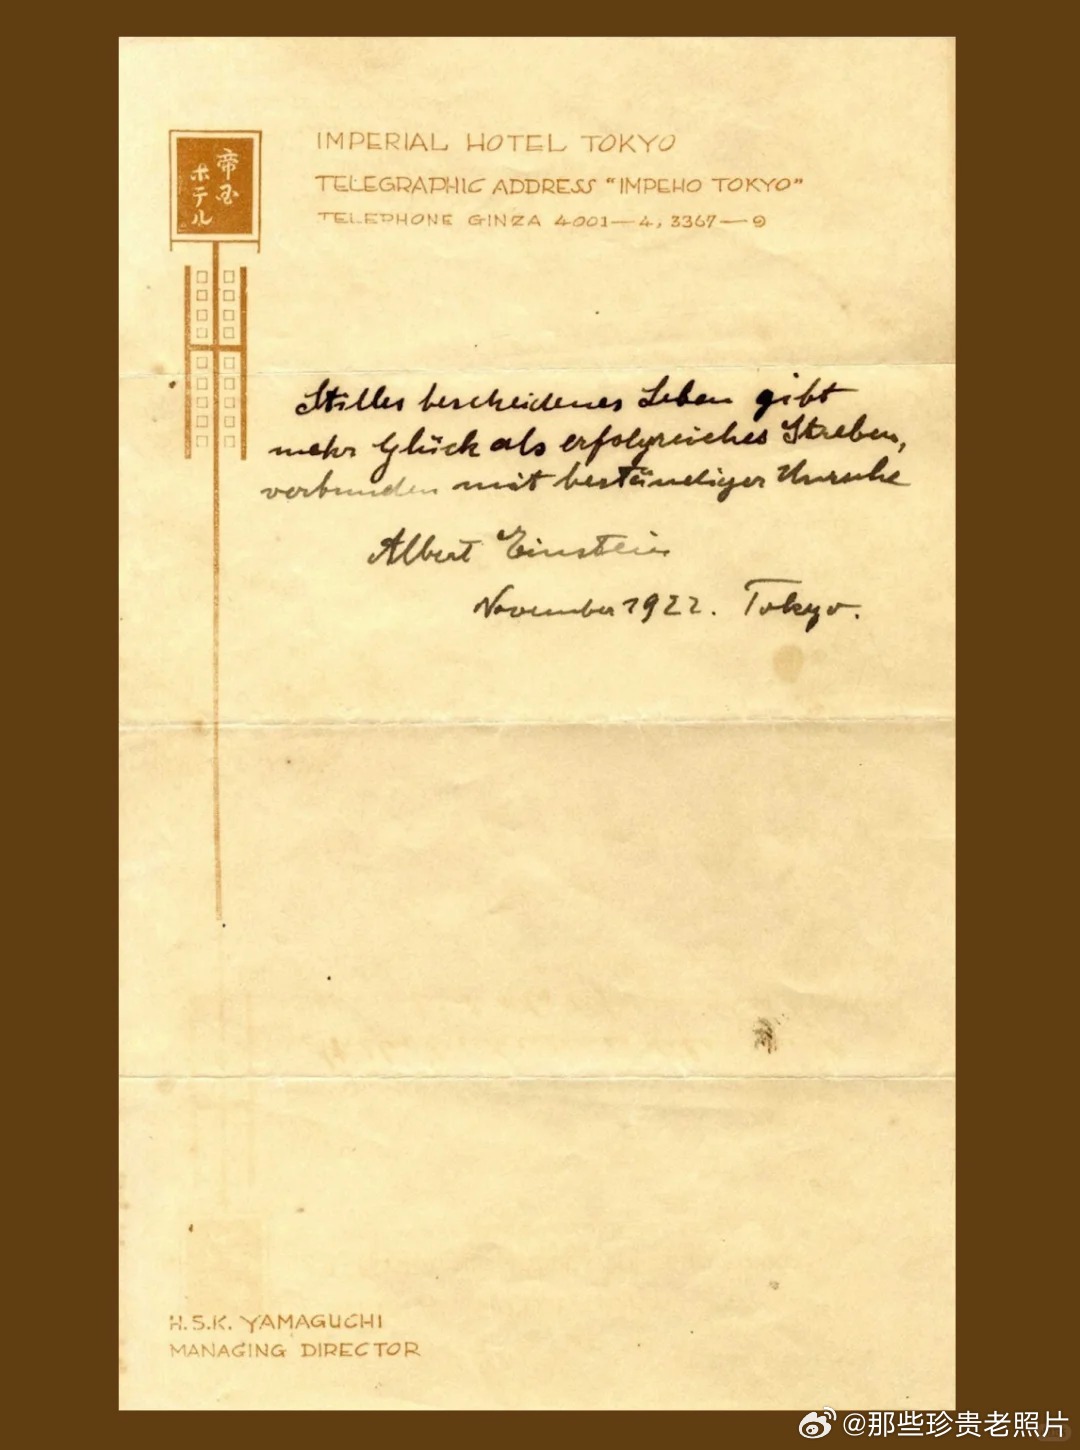 帝国
ホテル
IMPERIAL HOTEL TOKYO
TELEGRAPHIC ADDRESS "IMPEHO TOKYO"
TELEPHONE GINZA 4001—4, 3367—9
Stilles bescheidenes Leben gibt
mehr Glück als erfolgreiches Streben,
verbunden mit beständiger Unruhe
Albert Einstein
November 1922. Tokyo.
H.S.K. YAMAGUCHI
MANAGING DIRECTOR
@那些珍贵老照片